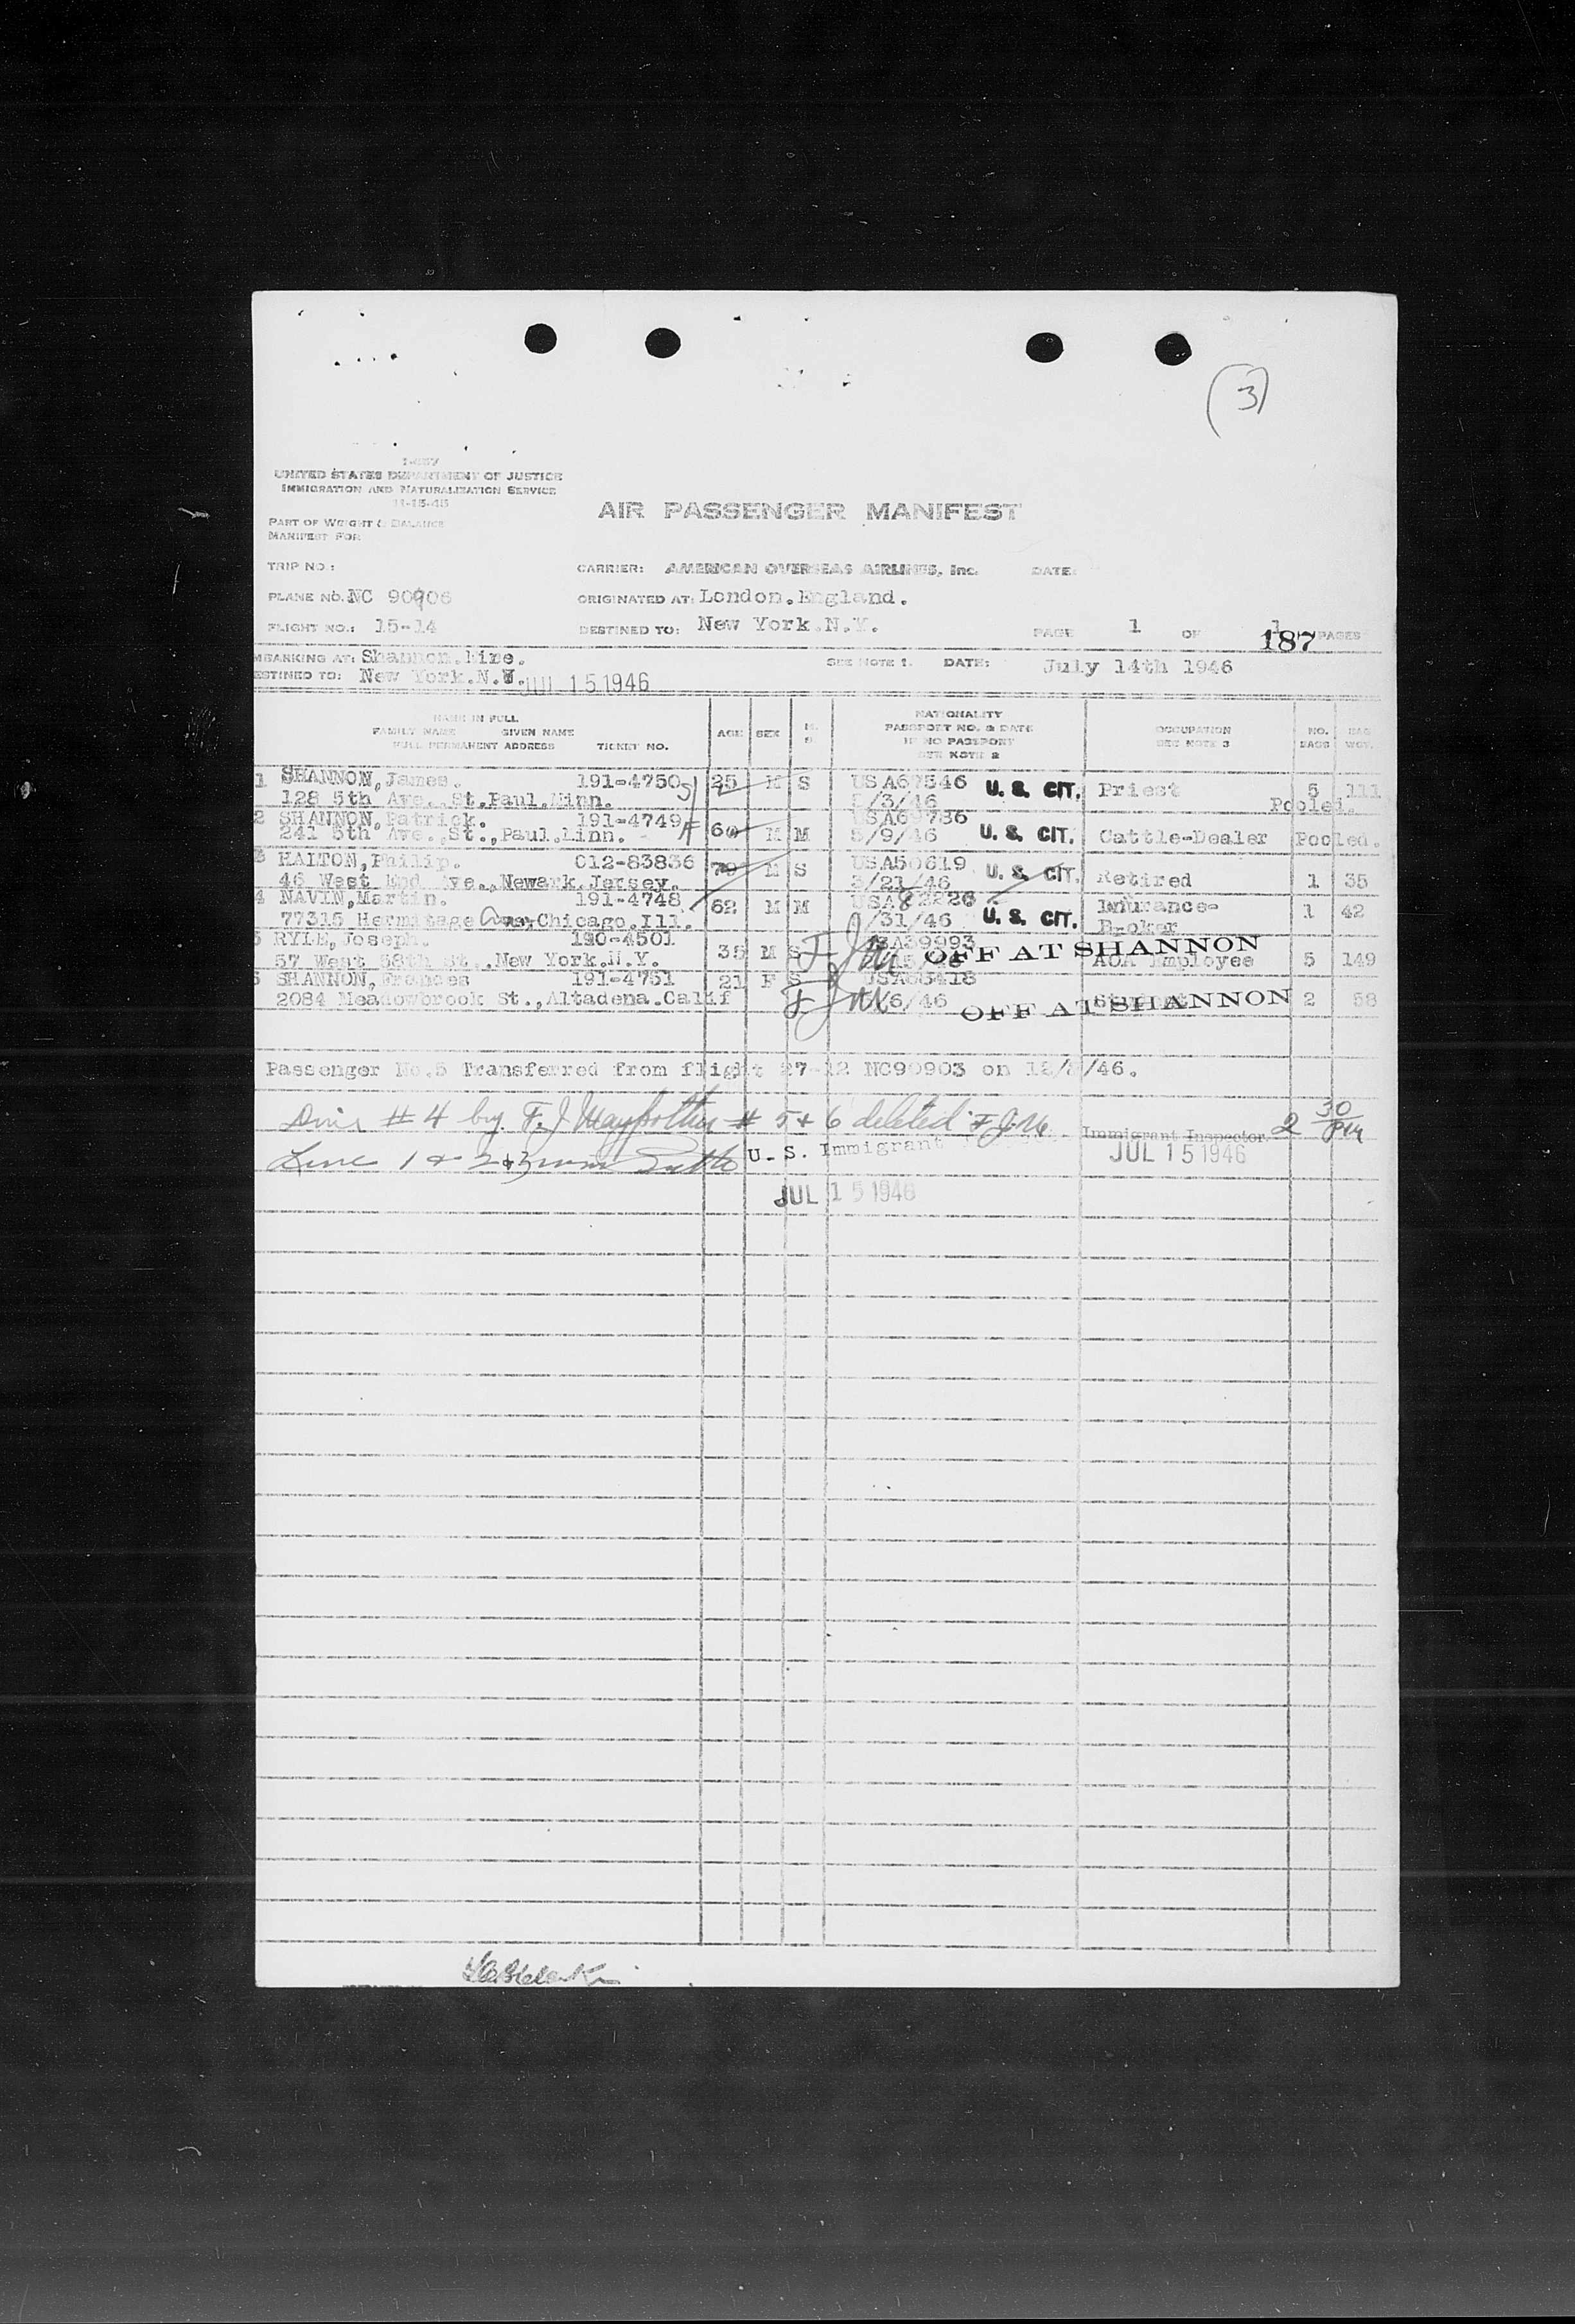 (3)
UNITED STATES DEPARTMENT OF JUSTICE
IMMIGRATION AND NATURALIZATION SERVICE
11-15-45
AIR PASSENGER MANIFEST
PART OF WEIGHT & BALANCE
MANIFEST FOR
TRIP NO.: CARRIER: AMERICAN OVERSEAS AIRLINES, Inc. DATE:
PLANE NO. NC 90906 ORIGINATED AT: London.England.
FLIGHT NO.: 15-14 DESTINED TO: New York.N.Y. PAGE 1 OF 1 PAGES
187
MBARKING AT: Shannon.Eire. SEE NOTE 1. DATE: July 14th 1946
ESTINED TO: New York.N.Y. JUL 15 1946
NAME IN FULL
FAMILY NAME GIVEN NAME
FULL PERMANENT ADDRESS TICKET NO.
AGE SEX M S
NATIONALITY
PASSPORT NO. & DATE
IF NO PASSPORT
SEE NOTE 2
OCCUPATION
SEE NOTE 3
NO. BAGS
BAG WGT.
1 SHANNON,James. 191-4750 25 M S USA67546 U. S. CIT. Priest 5 111
128 5th Ave. St.Paul.Minn. /3/46 Pooled.
2 SHANNON,Patrick. 191-4749 60 M M USA69786 U. S. CIT. Cattle-Dealer Pooled.
241 5th Ave. St.,Paul.Linn. 5/9/46
3 HALTON,Philip. 012-83836 79 M S USA50619 U. S. CIT. Retired 1 35
46 West End Ave.,Newark.Jersey. 3/21/46
4 NAVIN,Martin. 191-4748 62 M M U. S. CIT. Insurance- 1 42
77315 Hermitage Ave Chicago.Ill. /31/46 Broker
5 RYLE,Joseph. 190-4501 35 M S USA39993 OFF AT SHANNON AOA Employee 5 149
57 West 58th St.,New York.N.Y.
SHANNON,Frances 191-4751 21 F S USA63418 OFF AT SHANNON 2 58
2084 Meadowbrook St.,Altadena.Calif 6/46
Passenger No.5 Transferred from flight 27-12 NC90903 on
# 4 by F. J # 5 + 6 deleted F.J.M. Immigrant Inspector 2 30 PM
Line 1 + 2 + 3 U. S. Immigrant JUL 15 1946
JUL 15 1946